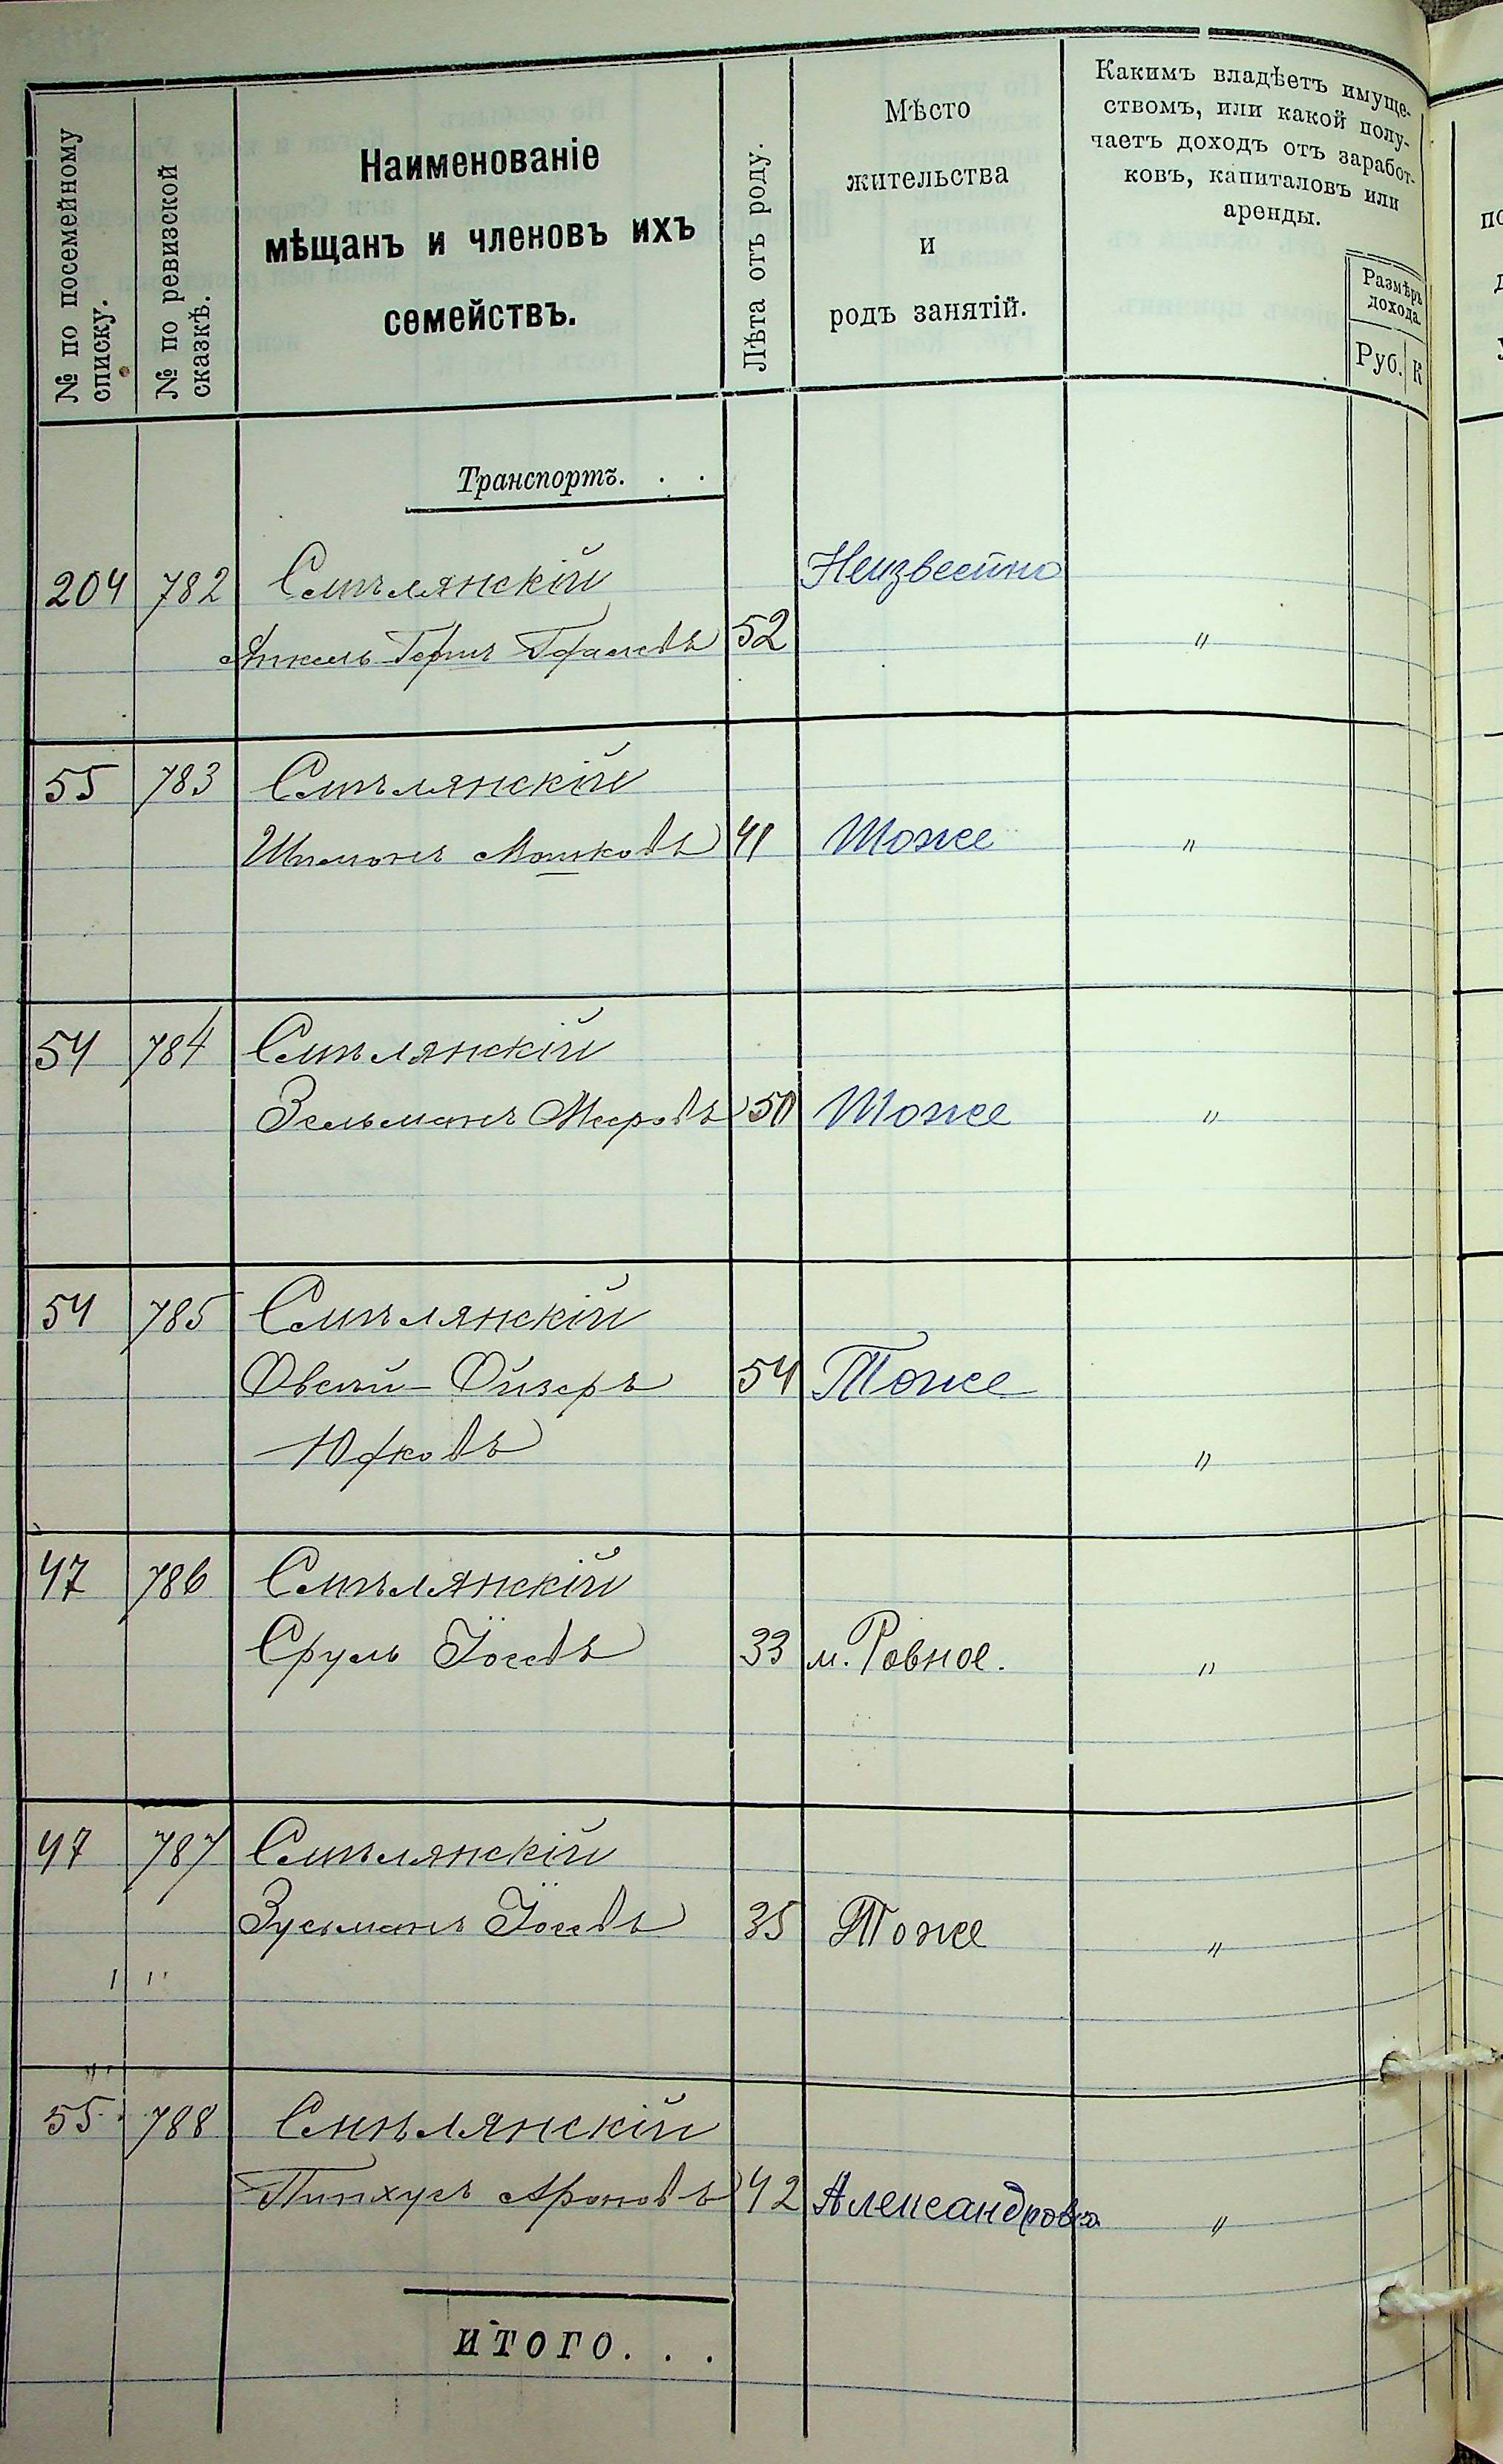 № по посемейному
списку.
№ по ревизской
сказкѣ.
Наименованіе
мѣщанъ и членовъ ихъ
семействъ.
Лѣта отъ роду.
Мѣсто
жительства
и
родъ занятій.
Какимъ владѣетъ имуще-
ствомъ, или какой полу-
чаетъ доходъ отъ заработ-
ковъ, капиталовъ или
аренды.
Размѣръ
дохода
Руб. К
Транспортъ. . .
204 782 Смѣлянскій Неизвестно
52 "
55 783 Смѣлянскій
Шимонъ Мошковъ 41 Тоже "
54 784 Смѣлянскій
Зельманъ Мееровъ 50 Тоже "
54 785 Смѣлянскій
Овсѣй-Ойзеръ 54 Тоже
Юфковъ "
47 786 Смѣлянскій
Сруль Іосевъ 33 м. Ровное. "
47 787 Смѣлянскій
Зусьманъ Іосевъ 35 Тоже "
55 788 Смѣлянскій
Пинхусъ Ароновъ 42 Александровка "
ИТОГО. . .